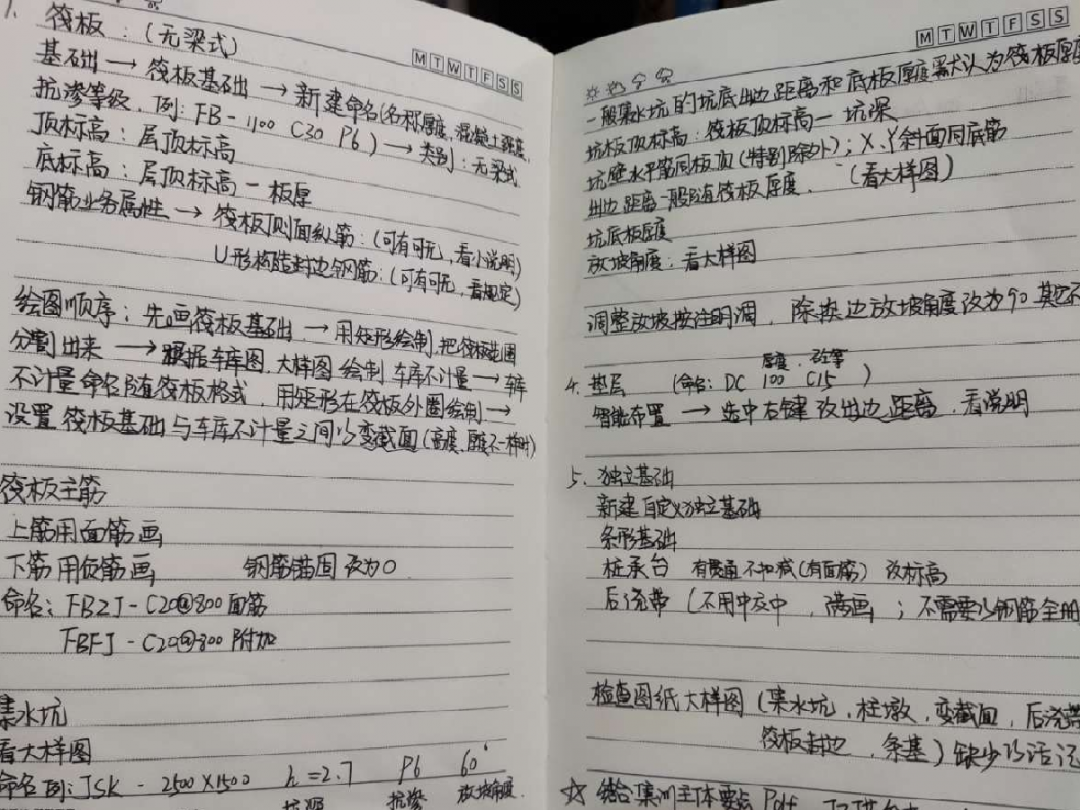 1. 筏板：（无梁式）
MTWTFSS
基础→筏板基础→新建命名（名称厚度、混凝土强度、
抗渗等级，例：FB-1100 C30 P6）→类别：无梁式
顶标高：层顶标高
底标高：层顶标高-板厚
钢筋业务属性→筏板侧面纵筋：（可有可无，看小说明）
U形构造封边钢筋：（可有可无，看规定）
绘图顺序：先画筏板基础→用矩形绘制，把筏板范围
分割出来→根据车库图，大样图绘制车库不计量→车库
不计量命名随筏板格式，用矩形在筏板外圈绘制→
设置筏板基础与车库不计量之间以变截面（高度、厚度不一样时）
筏板主筋
上筋用面筋画
下筋用负筋画 钢筋锚固改为0
命名：FBZJ-C20@300面筋
FBFJ-C20@300附加
集水坑
看大样图
命名例：JSK-2500×1500 h=2.7 P6 60°
坑深 抗渗 放坡角度
MTWTFSS
一般集水坑的坑底出边距离和底板厚度默认为筏板厚度
坑板顶标高：筏板顶标高-坑深
坑壁水平筋同板面（特别除外）；X、Y斜面同底筋
出边距离一般随筏板厚度，（看大样图）
坑底板厚度
放坡角度：看大样图
调整放坡按注明调，除挨边放坡角度改为90其它不
厚度 砼等
4. 垫层 （命名：DC 100 C15）
智能布置→选中右键改出边距离，看说明
5. 独立基础
新建自定义独立基础
条形基础
桩承台 有贯通不扣减（有面筋）改标高
后浇带（不用中交中，满画；不需要以钢筋全用
检查图纸大样图（集水坑，柱墩，变截面，后浇带
筏板封边，条基）缺少
☆ 结合 主体要点 Pdf